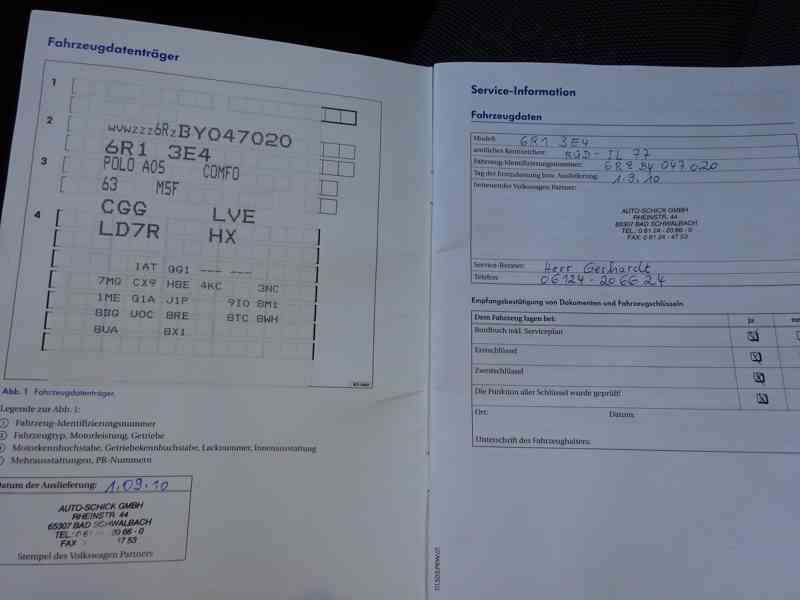 Fahrzeugdatenträger
1
2
3
4
WVWZZZ6RZBY047020
6R1 3E4
POLO A05 COMFO
63 M5F
CGG LVE
LD7R HX
1AT GG1 --- ---
7MG CX9 H8E 4KC 3NC
1ME G1A J1P 9IO 8M1
8BG UOC 8RE 8TC 8WH
8UA 8X1
Abb. 1 Fahrzeugdatenträger.
Legende zur Abb. 1:
Fahrzeug-Identifizierungsnummer
Fahrzeugtyp, Motorleistung, Getriebe
Motorkennbuchstabe, Getriebekennbuchstabe, Lacknummer, Innenausstattung
Mehrausstattungen, PR-Nummern
Datum der Auslieferung: 1.09.10
AUTO-SCHICK GMBH
RHEINSTR. 44
65307 BAD SCHWALBACH
TEL.: 0 61 20 66 - 0
FAX 47 53
Stempel des Volkswagen Partners
Service-Information
Fahrzeugdaten
Modell: 6R1 3E4
amtliches Kennzeichen: RÜD-IL 77
Fahrzeug-Identifizierungsnummer: 6RZ BY 047 020
Tag der Erstzulassung bzw. Auslieferung: 1.9.10
betreuender Volkswagen Partner:
AUTO-SCHICK GMBH
RHEINSTR. 44
65307 BAD SCHWALBACH
TEL.: 0 61 24 - 20 66 - 0
FAX: 0 61 24 - 47 53
Service-Berater: Herr Gerhardt
Telefon: 06124-206624
Empfangsbestätigung von Dokumenten und Fahrzeugschlüsseln
Dem Fahrzeug lagen bei: ja
Bordbuch inkl. Serviceplan
Erstschlüssel
Zweitschlüssel
Die Funktion aller Schlüssel wurde geprüft!
Ort: Datum:
Unterschrift des Fahrzeughalters: